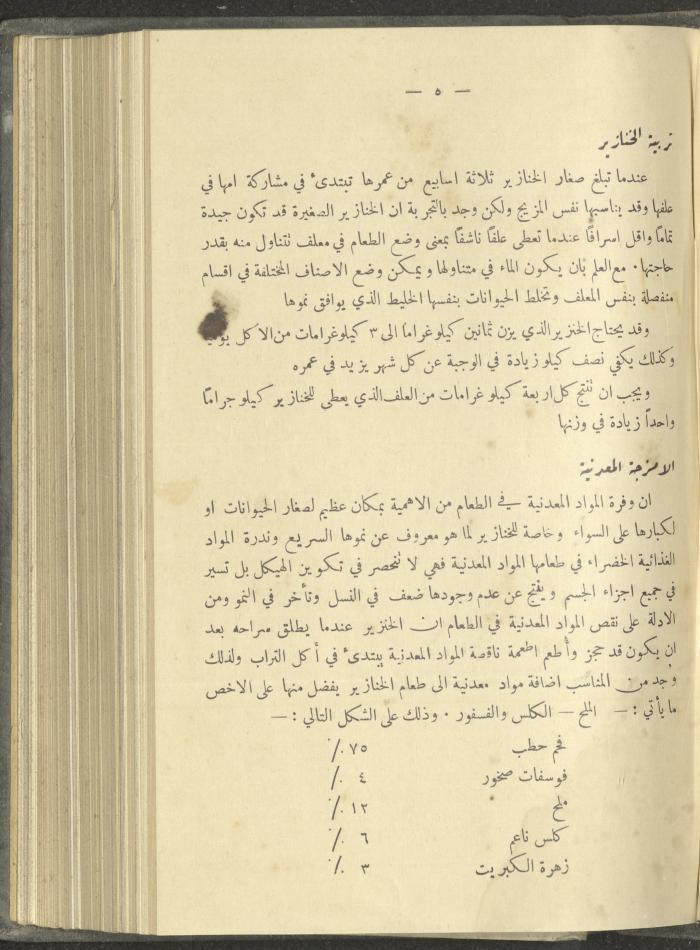 — ٥ —
تربية الخنازير
عندما تبلغ صغار الخنازير ثلاثة اسابيع من عمرها تبتدئ في مشاركة امها في
علفها وقد يناسبها نفس المزيج ولكن وجد بالتجربة ان الخنازير الصغيرة قد تكون جيدة
تماماً واقل اسرافاً عندما تعطى علفاً ناشفاً بمعنى وضع الطعام في معلف تتناول منه بقدر
حاجتها . مع العلم بان يكون الماء في متناولها ويمكن وضع الاصناف المختلفة في اقسام
منفصلة بنفس المعلف وتخلط الحيوانات بنفسها الخليط الذي يوافق نموها
وقد يحتاج الخنزير الذي يزن ثمانين كيلوغراماً الى ٣ كيلوغرامات من الاكل يومياً
وكذلك يكفي نصف كيلو زيادة في الوجبة عن كل شهر يزيد في عمره
ويجب ان تنتج كل اربعة كيلو غرامات من العلف الذي يعطى للخنازير كيلو جراماً
واحداً زيادة في وزنها
الامزجة المعدنية
ان وفرة المواد المعدنية في الطعام من الاهمية بمكان عظيم لصغار الحيوانات او
لكبارها على السواء وخاصة للخنازير لما هو معروف عن نموها السريع وندرة المواد
الغذائية الخضراء في طعامها المواد المعدنية فهي لا تنحصر في تكوين الهيكل بل تسير
في جميع اجزاء الجسم وينتج عن عدم وجودها ضعف في النسل وتأخر في النمو ومن
الادلة على نقص المواد المعدنية في الطعام ان الخنزير عندما يطلق سراحه بعد
ان يكون قد حجز وأطعم اطعمة ناقصة المواد المعدنية يبتدئ في أكل التراب ولذلك
وُجد من المناسب اضافة مواد معدنية الى طعام الخنازير يفضل منها على الاخص
ما يأتي : — الملح — الكلس والفسفور . وذلك على الشكل التالي : —
فحم حطب ٧٥ ٪
فوسفات صخور ٤ ٪
ملح ١٢ ٪
كلس ناعم ٦ ٪
زهرة الكبريت ٣ ٪